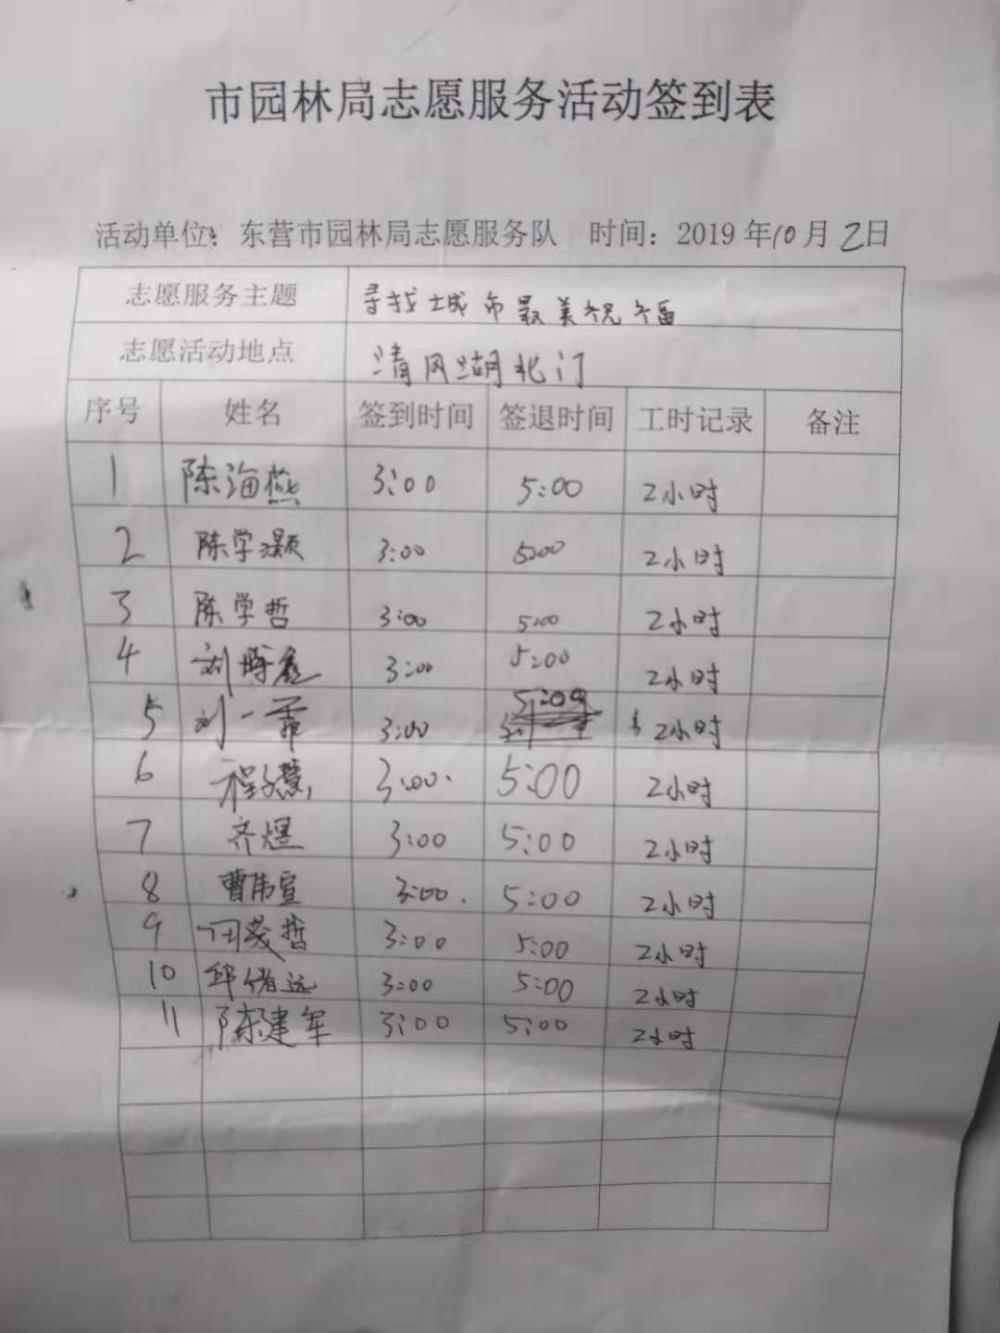 市园林局志愿服务活动签到表
活动单位：东营市园林局志愿服务队 时间：2019年10月2日
志愿服务主题 寻找城市最美祝福
志愿活动地点 清风湖北门
序号 姓名 签到时间 签退时间 工时记录 备注
1 陈海燕 3:00 5:00 2小时
2 陈学灏 3:00 5:00 2小时
3 陈学哲 3:00 5:00 2小时
4 刘 3:00 5:00 2小时
5 刘一 3:00 5:00 2小时
6 程 3:00 5:00 2小时
7 齐煜 3:00 5:00 2小时
8 曹伟宣 3:00 5:00 2小时
9 田茂哲 3:00 5:00 2小时
10 邱 远 3:00 5:00 2小时
11 陈建军 3:00 5:00 2小时